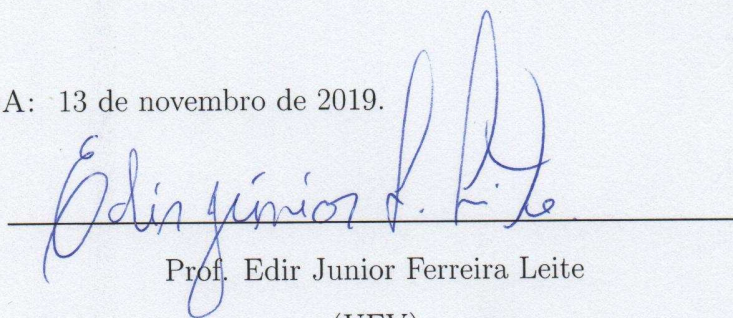 A: 13 de novembro de 2019.
Edir Júnior F. Leite
Prof. Edir Junior Ferreira Leite
(UFV)